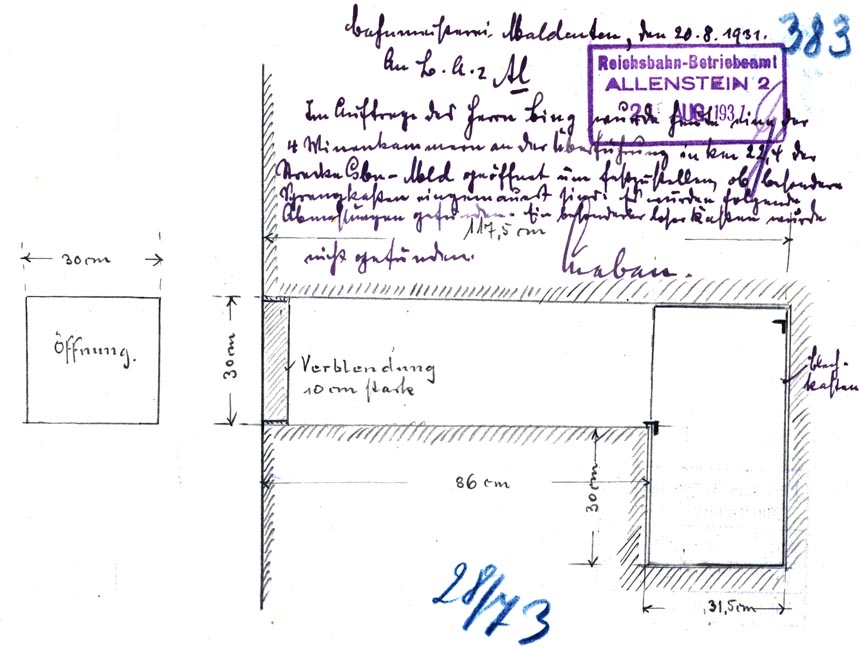 Bahnmeisterei Maldeuten, den 20.8.1931.
383
An B.A. 2 Al
Reichsbahn-Betriebsamt
ALLENSTEIN 2
AUG 1931
Im Auftrage des Herrn Bing wurde heute eine der
4 Minenkammern an der Überführung in km 22,4 der
Strecke Osbn-Mld geöffnet um festzustellen ob besondere
Sprengkasten eingemauert sind. Es wurden folgende
Abmessungen gefunden. Ein besonderer loser Kasten wurde
117,5 cm
nicht gefunden.
30 cm
Öffnung.
30 cm
Verblendung
10 cm stark
Blech-
kasten
86 cm
30 cm
31,5 cm
28/73